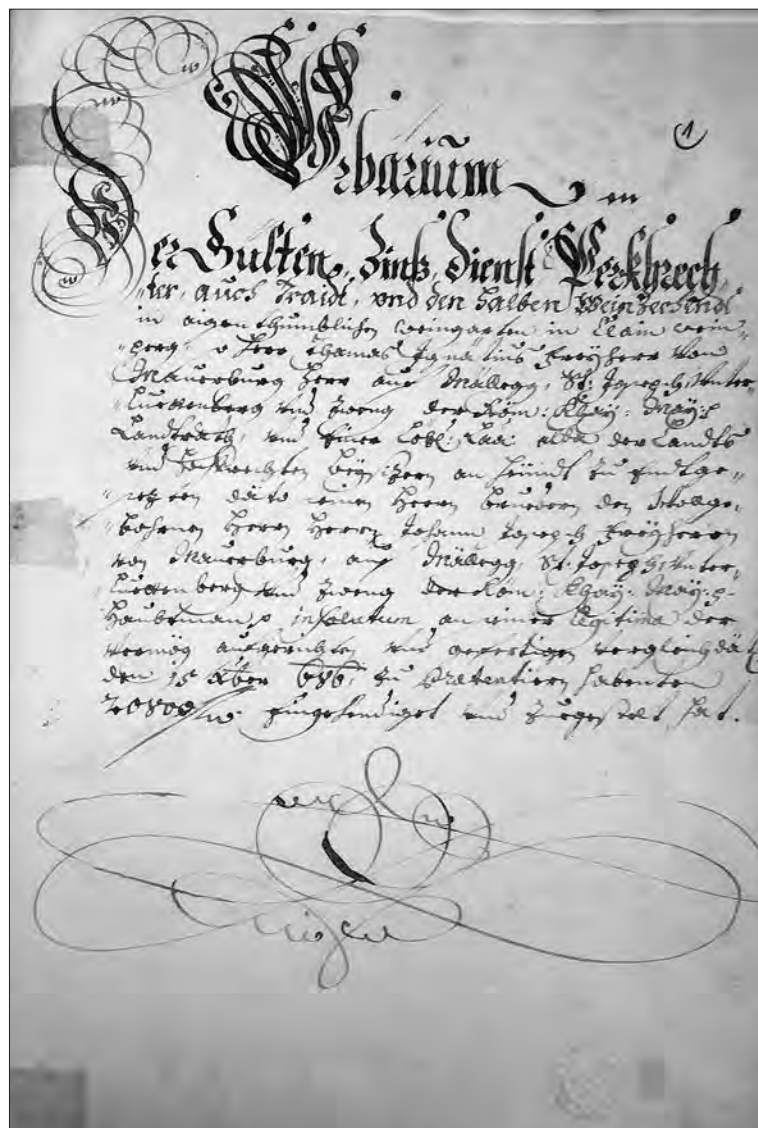 1
Urbarium
Der Gulten, Zinß, Dienst Perkhrech„
„ter, auch Traidt, und den halben Weinzechendt
in aigenthumblichen weingarten in Clain wein„
„perg, Herr Thamas Ignatius Freyherr von
Mauerburg Herr auf Mällegg, St: Joseph, Unter„
„Luettenberg und Zweng der Röm: Khay: May:
Landtrath, und einer Löbl: Laa: alda der Landts
und Hoffrechten beysizern an hündt zu
dato seinen Herrn bruedern den Wollge„
„bohrnen Herrn Herrn Johann Joseph Freyherrn
von Mauerburg, auf Mällegg, St: Joseph, Unter„
„Luettenberg und Zweng der Röm: Khay: May:
Haubtman in solutum an seiner Legitima der
vermög aufgerichten und gefertigen vergleich
den 15 Xber 686, zu Praetentiern habenten
eingehendiget und zuegestelt hat.